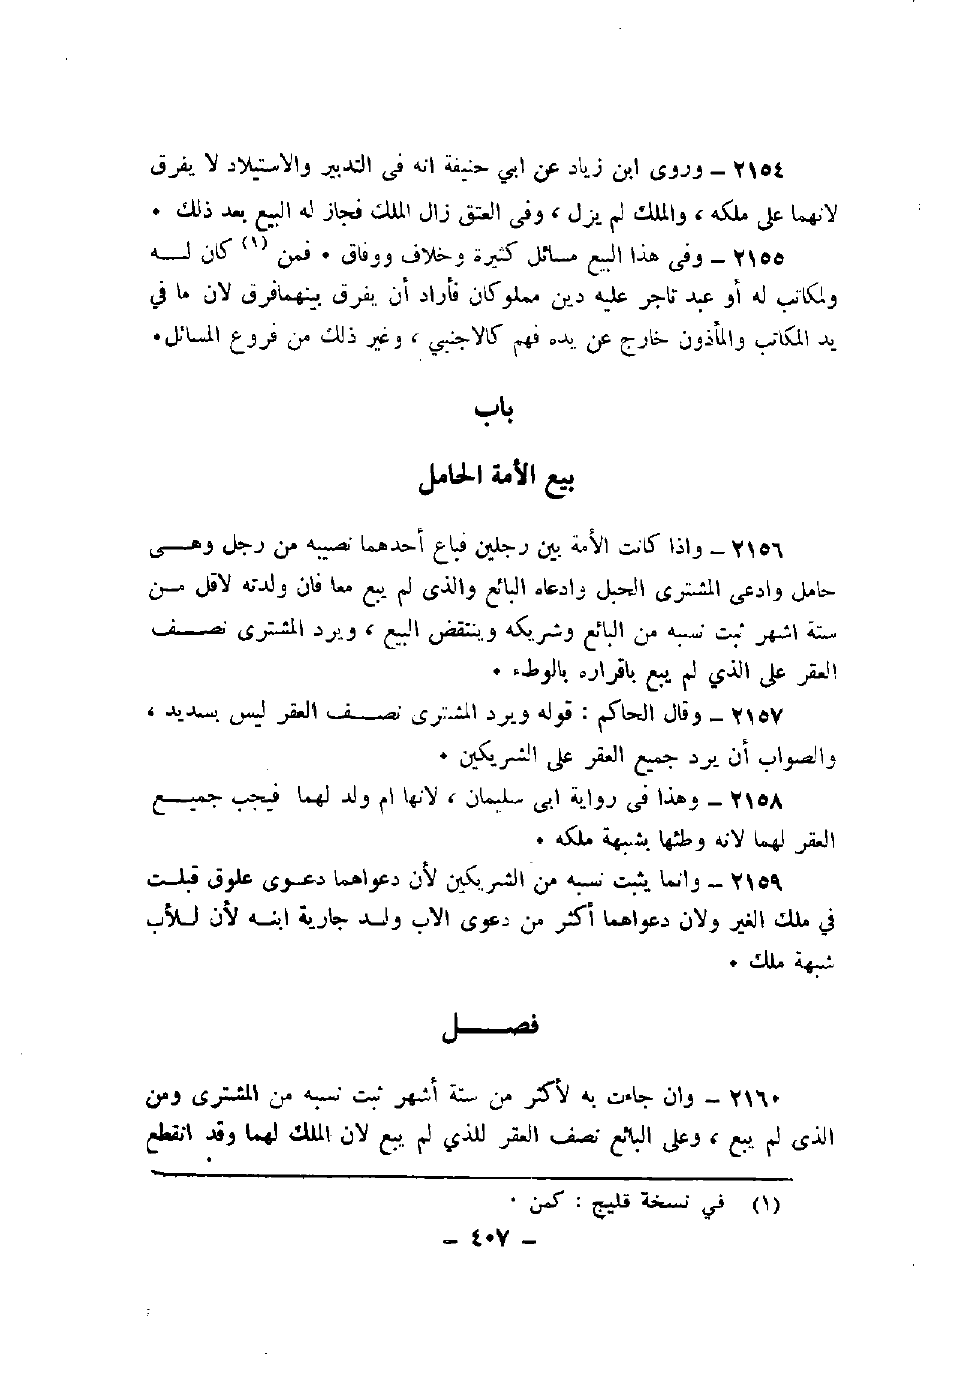 ٢١٥٤ ـ وروى ابن زياد عن ابي حنيفة انه فى التدبير والاستيلاد لا يفرق
لانهما على ملكه ، والملك لم يزل ، وفى العتق زال الملك فجاز له البيع بعد ذلك ٠
٢١٥٥ ـ وفى هذا البيع مسائل كثيرة وخلاف ووفاق ٠ فمن (١) كان لـــه
ولمكاتب له أو عبد تاجر عليه دين مملوكان فأراد أن يفرق بينهمافرق لان ما في
يد المكاتب والمأذون خارج عن يده فهم كالاجنبي ، وغير ذلك من فروع المسائل٠
باب
بيع الأمة الحامل
٢١٥٦ ـ واذا كانت الأمة بين رجلين فباع أحدهما نصيبه من رجل وهــى
حامل وادعى المشترى الحبل وادعاه البائع والذى لم يبع معا فان ولدته لاقل مــن
ستة اشهر ثبت نسبه من البائع وشريكه وينتقض البيع ، ويرد المشترى نصــف
العقر على الذي لم يبع باقراره بالوطء ٠
٢١٥٧ ـ وقال الحاكم : قوله ويرد المشترى نصــف العقر ليس بسديد ،
والصواب أن يرد جميع العقر على الشريكين ٠
٢١٥٨ ـ وهذا فى رواية ابى سليمان ، لانها ام ولد لهما فيجب جميــع
العقر لهما لانه وطئها بشبهة ملكه ٠
٢١٥٩ ـ وانما يثبت نسبه من الشريكين لأن دعواهما دعـوى علوق قبلـت
في ملك الغير ولان دعواهما أكثر من دعوى الاب ولـد جارية ابنـه لأن لـلأب
شبهة ملك ٠
فصــــل
٢١٦٠ ـ وان جاءت به لأكثر من ستة أشهر ثبت نسبه من المشترى ومن
الذى لم يبع ، وعلى البائع نصف العقر للذي لم يبع لان الملك لهما وقد انقطع
(١) في نسخة قليج : كمن ٠
ـ ٤٠٧ ـ